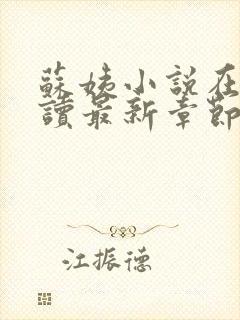 蘇姨小說在
讀最新章節
江振德